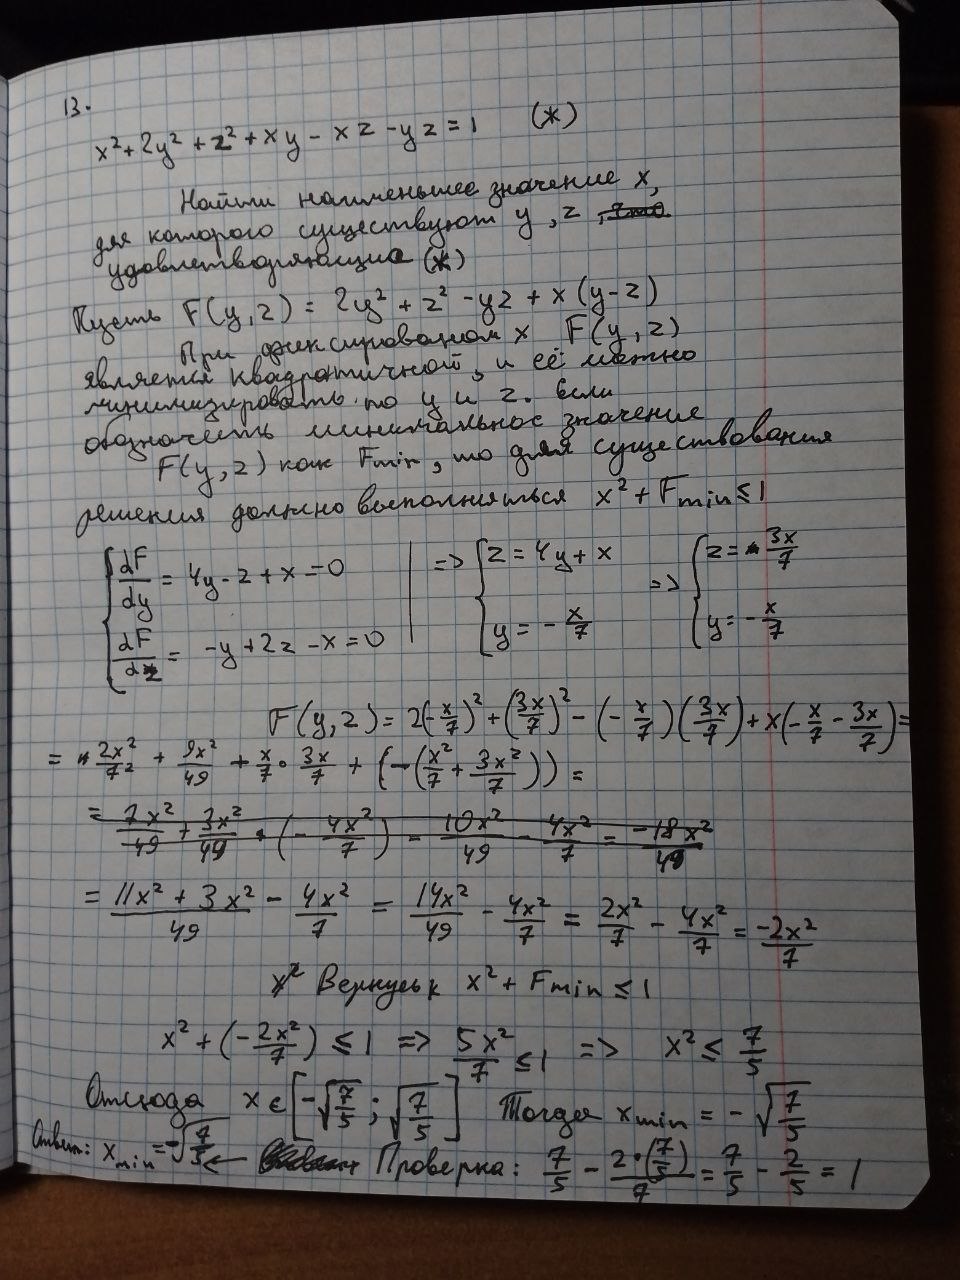 13.
x² + 2y² + z² + xy - xz - yz = 1 (*)
Найти наименьшее значение x,
для которого существуют y, z
удовлетворяющие (*)
Пусть F(y, z) = 2y² + z² - yz + x(y-z)
При фиксированном x F(y, z)
является квадратичной, и её можно
минимизировать по y и z. Если
обозначить минимальное значение
F(y, z) как Fmin, то для существования
решения должно выполняться x² + Fmin ≤ 1
{ dF/dy = 4y - z + x = 0 | => { z = 4y + x => { z = 3x/7
{ dF/dz = -y + 2z - x = 0 | { y = -x/7 { y = -x/7
F(y, z) = 2(-x/7)² + (3x/7)² - (-x/7)(3x/7) + x(-x/7 - 3x/7) =
= 2x²/7² + 9x²/49 + x/7 · 3x/7 + (-(x²/7 + 3x²/7)) =
= 7x²/49 + 3x²/49 + (-4x²/7) = 10x²/49 - 4x²/7 = -18x²/49
= 11x² + 3x²/49 - 4x²/7 = 14x²/49 - 4x²/7 = 2x²/7 - 4x²/7 = -2x²/7
x² Вернусь к x² + Fmin ≤ 1
x² + (-2x²/7) ≤ 1 => 5x²/7 ≤ 1 => x² ≤ 7/5
Отсюда x ∈ [-√7/5 ; √7/5] Тогда xmin = -√7/5
Ответ: xmin = -√7/5 ← Проверка: 7/5 - 2·(7/5)/7 = 7/5 - 2/5 = 1